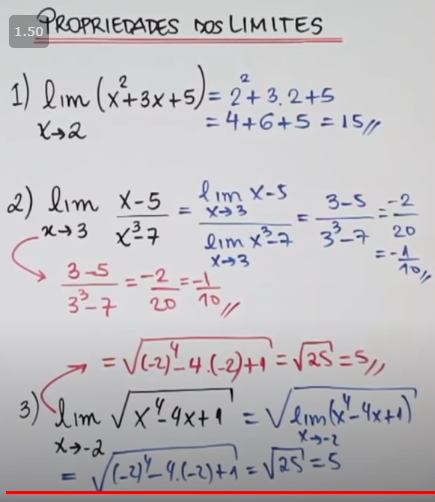 1.50
PROPRIEDADES DOS LIMITES
1) lim (x²+3x+5) = 2²+3.2+5
x→2
= 4+6+5 = 15//
2) lim x→3 (x-5)/(x³-7) = (lim x→3 x-5)/(lim x→3 x³-7) = (3-5)/(3³-7) = -2/20
= -1/10//
(3-5)/(3³-7) = -2/20 = -1/10//
= √((-2)⁴-4.(-2)+1) = √25 = 5//
3) lim x→-2 √(x⁴-4x+1) = √(lim x→-2 (x⁴-4x+1))
= √((-2)⁴-4.(-2)+1) = √25 = 5